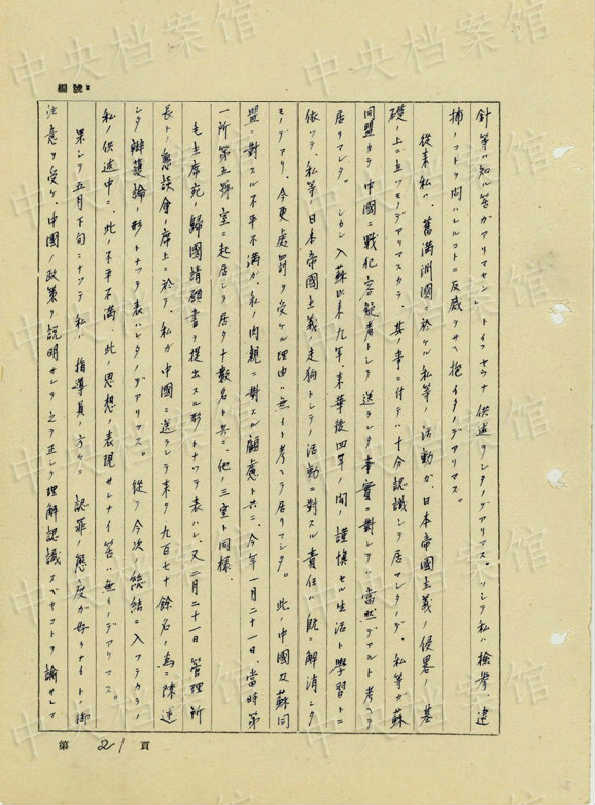 編號:
針等ハ知ル筈ガアリマセン」トイフヤウナ供述ヲシタノデアリマス。ソシテ私ハ検挙、逮
捕ノコトヲ問ハレルコトニ反感ヲサヘ抱イタノデアリマス。
従来私ハ、舊満洲國ニ於ケル私等ノ活動ガ、日本帝國主義ノ侵略ノ基
礎ノ上ニ立ツモノデアリマスカラ、其ノ事ニ付テハ十分認識シテ居マシタノデ。私等ガ蘇
同盟カラ中國ニ戰犯容疑者トシテ送ラレタ事實ニ對シテハ當然デアルト考ヘテ
居リマシタ。シカシ入蘇以来九年、来華後四年ノ間謹慎セル生活ト學習トニ
依ツテ、私等ノ日本帝國主義ノ走狗トシテノ活動ニ對スル責任ハ既ニ解消シタ
モノデアリ、今更處罰ヲ受ケル理由ハ無イト考ヘテ居リマシタ。此ノ中國及蘇同
盟ニ對スル不平不満ガ、私ノ肉親ニ對スル顧慮ト共ニ、今年一月二十一日、當時第
一所第五號室ニ起居シテ居タ十数名ト共ニ、他ノ三室ト同様、
毛主席宛歸國請願書ヲ提出スル形トナツテ表ハレ、又二月二十一日管理所
長トノ懇談會ノ席上ニ於テ、私ガ中國ニ送ラレテ来タ九百七十餘名ノ為ニ陳述
シタ辯護論ノ形トナツテ表ハレタノデアリマス。従テ今次ノ総結ニ入ツテカラノ
私ノ供述中ニ、此ノ不平不満、此ノ思想ノ表現サレナイ筈ハ無イノデアリマス。
果シテ五月下旬ニナツテ私ハ指導員ノ方々ニ認罪ノ態度ガ好クナイトノ御
注意ヲ受ケ、中國ノ政策ヲ説明サレテ之ヲ正シク理解認識スベキコトヲ諭サレマ
第 21 頁
中央档案馆